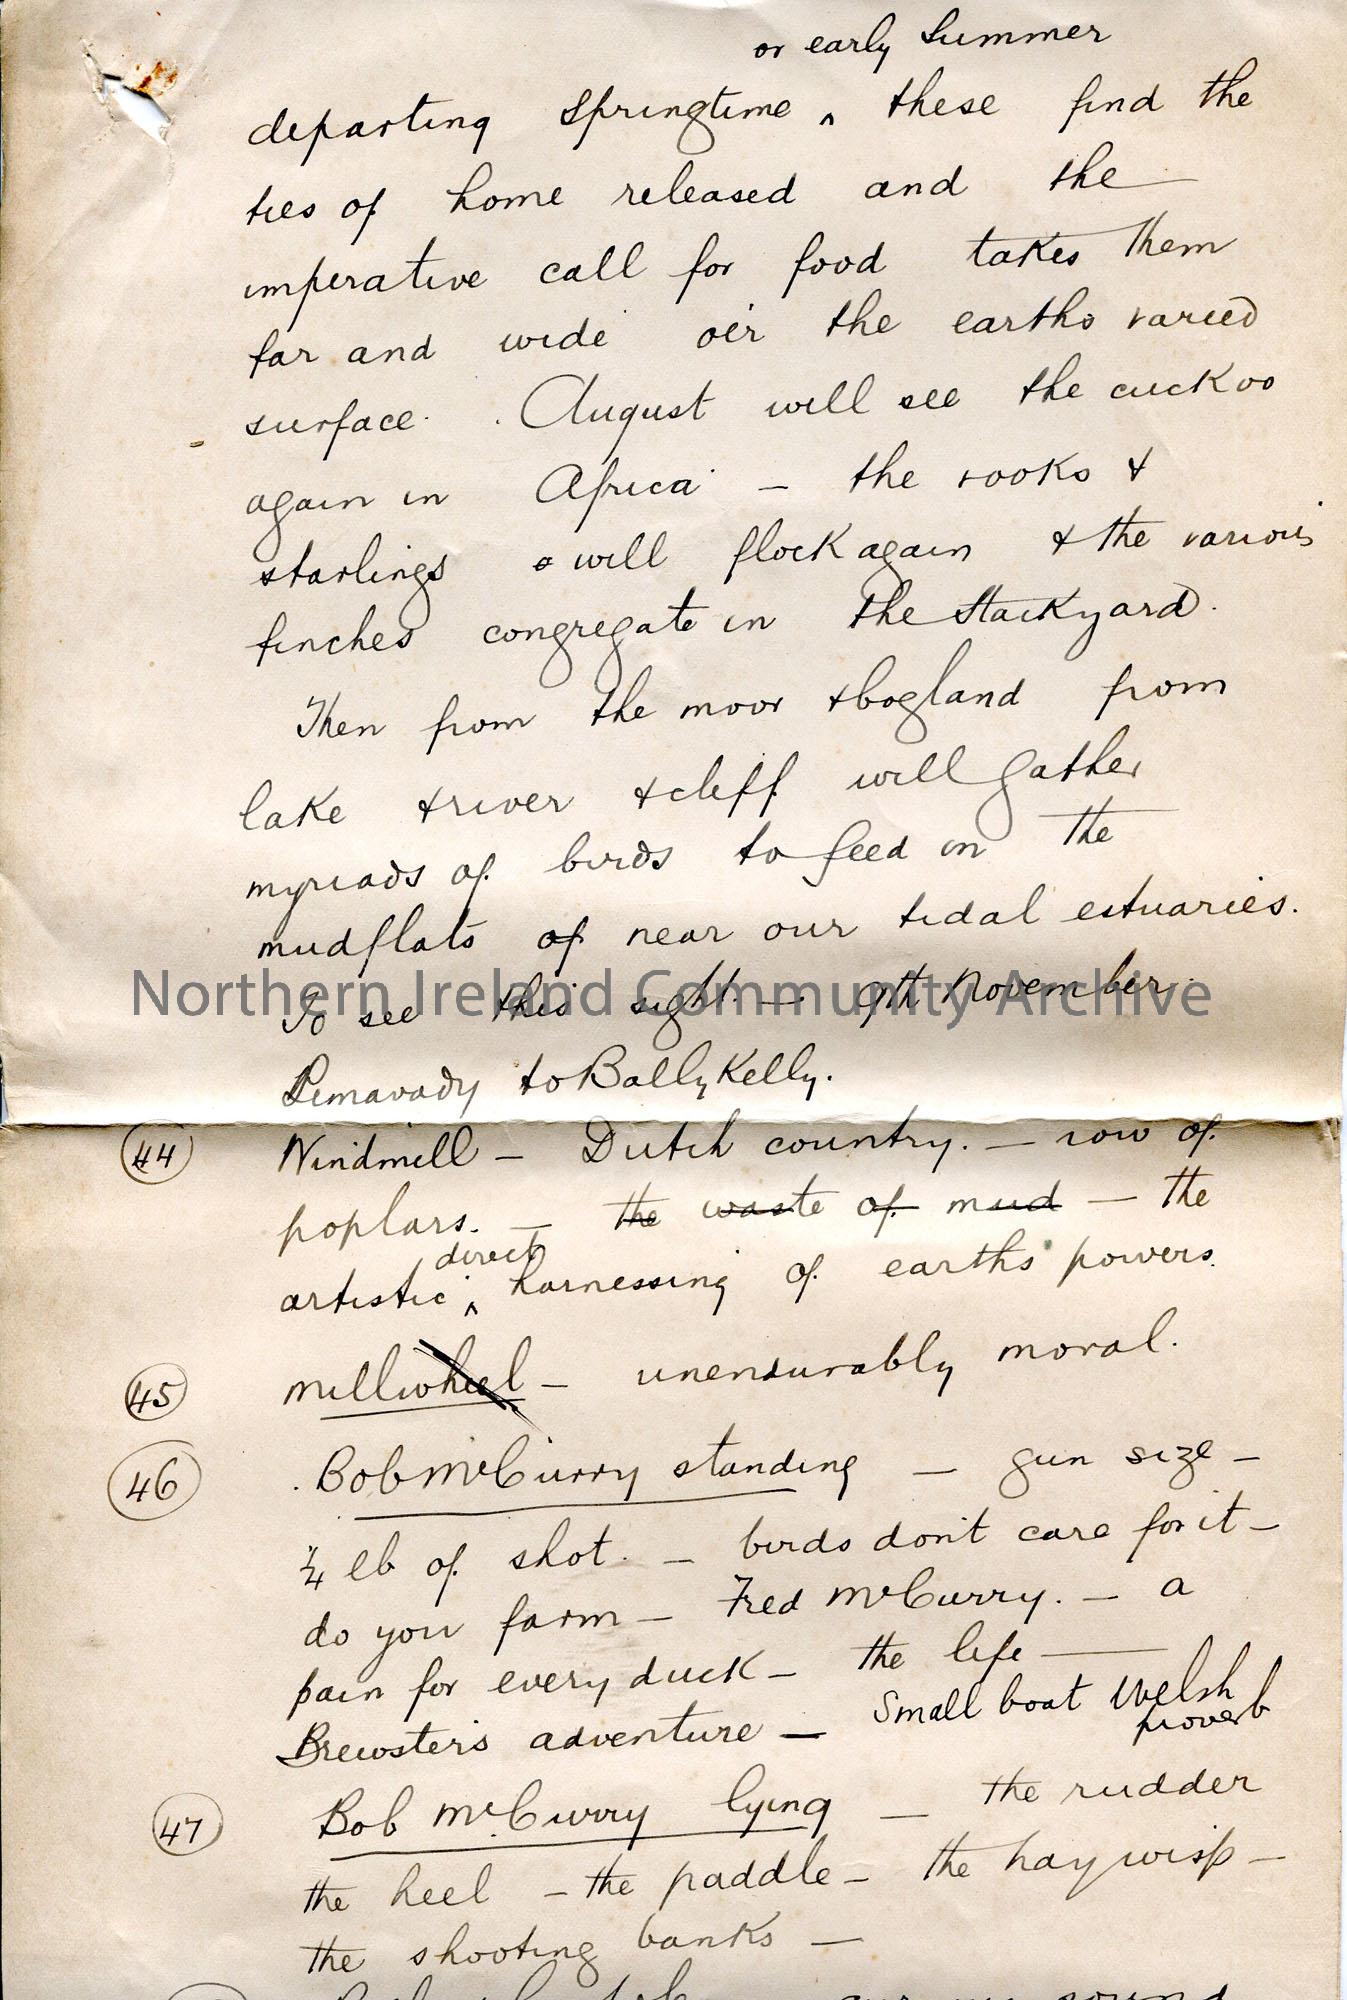 or early Summer
departing Springtime ‸ these find the
ties of home released and the
imperative call for food takes them
far and wide oer the earths varied
surface. August will see the cuckoo
again in Africa – the rooks &
starlings & will flock again & the various
finches congregate in the Stackyard.
Then from the moor & bogland from
lake & river & cliff will gather
myriads of birds to feed in the
mudflats of near our tidal estuaries.
Northern Ireland Community Archive
To see this sight. – 9th November
Limavady to BallyKelly.
44 Windmill – Dutch country. – row of
poplars. – the waste of mud – the
direct
artistic ‸ harnessing of earths powers.
45 millwheel – unensurably moral.
46 Bob McCurry standing – gun size –
¼ lb of shot. – birds don't care for it –
do you farm – Fred McCurry. – a
pain for every duck – the life –
Brewster's adventure – Small boat Welsh
proverb
47 Bob McCurry lying – the rudder
the heel – the paddle – the hay wisp –
the shooting banks –